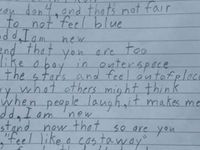 you don't, and that's not fair
to not feel blue
odd, I am new
end that you are too
like a boy in outerspace
the stars and feel out of place
ry what others might think
when people laugh, it makes me
dd, I am new
stand now that so are you
, "feel like a castaway"